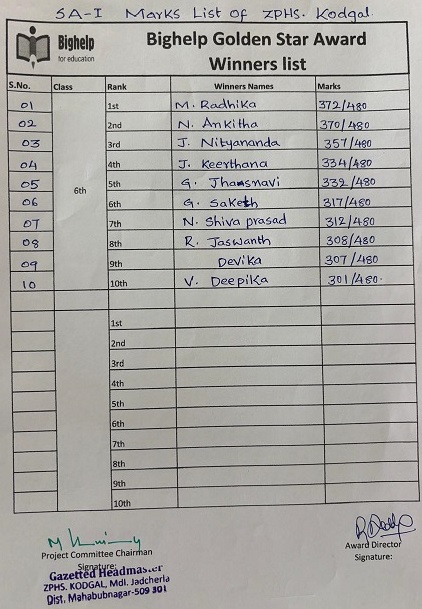 SA-I Marks List of ZPHS. Kodgal.
Bighelp
for education
Bighelp Golden Star Award
Winners list
S.No. Class Rank Winners Names Marks
01 1st M. Radhika 372/480
02 2nd N. Ankitha 370/480
03 3rd J. Nityananda 357/480
04 4th J. Keerthana 334/480
05 6th 5th G. Jhansnavi 332/480
06 6th G. Saketh 317/480
07 7th N. Shiva prasad 312/480
08 8th R. Jaswanth 308/480
09 9th Devika 307/480
10 10th V. Deepika 301/480.
1st
2nd
3rd
4th
5th
6th
7th
8th
9th
10th
Project Committee Chairman
Signature:
Award Director
Signature:
Gazetted Headmaster
ZPHS. KODGAL, Mdl. Jadcherla
Dist. Mahabubnagar-509 301